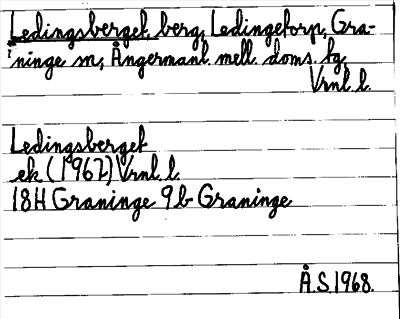 Ledingsberget, berg, Ledingetorp, Gra-
ninge sn, Ångermanl. mell. doms. bg,
Vrnl. l.
Ledingsberget
ek (1967) Vrnl. l.
18H Graninge 9b Graninge
Å.S. 1968.